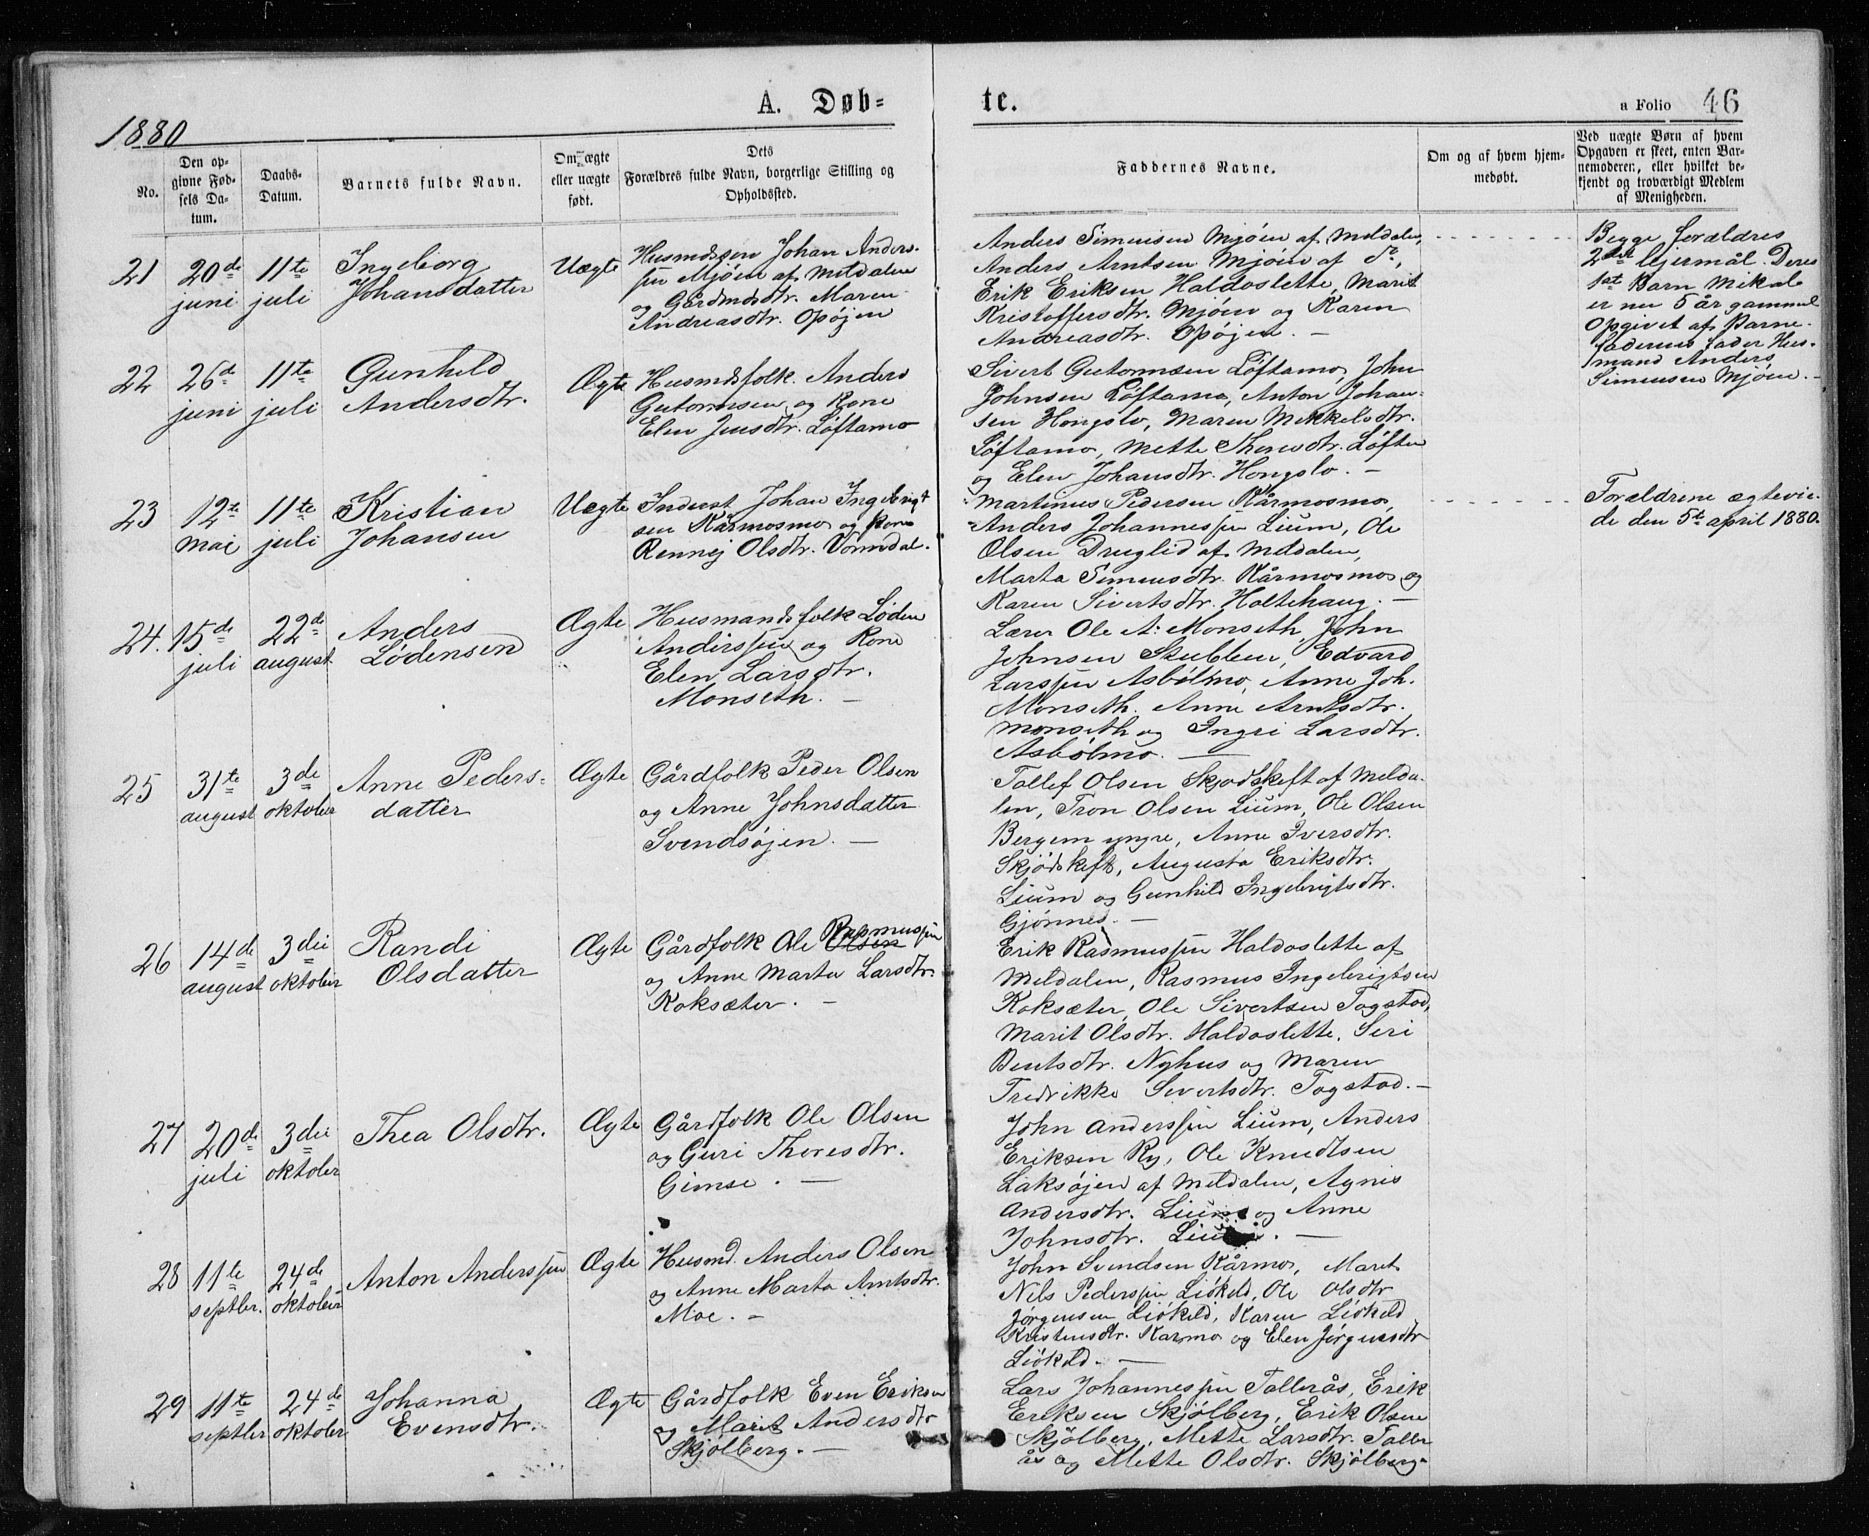 1880
A. Døb-
te.
a Folio 46
No.
Den op-
givne Fød-
sels Da-
tum.
Daabs-
Datum.
Barnets fulde Navn.
Om ægte
eller uægte
født.
Dets
Forældres fulde Navn, borgerlige Stilling og
Opholdssted.
Faddernes Navne.
Om og af hvem hjem-
medøbt.
Ved uægte Børn af hvem
Opgaven er skeet, enten Bar-
nemoderen, eller hvilket be-
kjendt og troværdigt Medlem
af Menigheden.
21
20de
juni
11te
juli
Ingeborg
Johansdatter
Uægte
Husmdssøn Johan Anders-
sen Mjöen af Meldalen
og Gårdmdsdtr. Maren
Andreasdtr. Opöjen
Anders Simensen Mjöen af Meldalen,
Anders Arntsen Mjöen af do,
Erik Eriksen Haldoslette, Marit
Kristoffersdtr. Mjöen og Karen
Andreasdtr. Opöjen. —
Begge forældres
2det lejermål. Deres
1ste Barn Mikal
er nu 5 år gammel
Opgivet af Barne-
faderens fader Hus-
mand Anders
Simensen Mjöen. —
22
26de
juni
11te
juli
Gunhild
Andersdtr.
Ægte
Husmdsfolk Anders
Gutormsen og Kone
Elen Jensdtr. Löftamo
Sivert Gutormsen Löftamo, John
Johnsen Löftamo, Anton Johan-
sen Hongslo, Maren Mikkelsdtr.
Löftamo, Mette Thoresdtr. Löften
og Elen Johansdtr. Hongslo. —
23
12te
mai
11te
juli
Kristian
Johansen
Uægte
Inderst Johan Ingebrigt
sen Kårmosmo og Kone
Rennej Olsdtr. Vormdal.
Martinus Pedersen Kårmosmo,
Anders Johannessen Lium, Ole
Olsen Druglid af Meldalen,
Marta Simensdtr. Kårmosmo og
Karen Sivertsdtr. Holtehaug. —
Forældrene ægtevie-
de den 5te april 1880.
24.
15de
juli
22de
august
Anders
Lödensen
Ægte
Husmandsfolk Löden
Anderssen og Kone
Elen Larsdtr.
Monseth. —
Lærer Ole A: Monseth, John
Johnsen Stubben, Edvard
Larssen Asbölmo, Anne Joh.
Monseth, Anne Arntsdtr.
Monseth og Ingri Larsdtr.
Asbölmo. —
25
31te
august
3de
oktober
Anne Peders-
datter
Ægte
Gårdfolk Peder Olsen
og Anne Johnsdatter
Svendsöjen. —
Tollef Olsen Skjødskift af Melda-
len, Tron Olsen Lium, Ole Olsen
Bergem yngre, Anne Iversdtr.
Skjödskift, Augusta Eriksdtr.
Lium og Gunhild Ingebrigtsdtr.
Gjönnes. —
26
14de
august
3die
oktober
Randi
Olsdatter
Ægte
Gårdfolk Ole Olsen Rasmussen
og Anne Marta Larsdtr.
Koksæter. —
Erik Rasmussen Haldoslette af
Meldalen, Rasmus Ingebrigtsen
Koksæter, Ole Sivertsen Fogstad,
Marit Olsdtr. Haldoslette, Seri
Bentsdtr. Nyhus og Maren
Fredrikke Sivertsdtr. Fogstad. —
27
20de
juli
3die
oktober
Thea Olsdtr.
Ægte
Gårdfolk Ole Olsen
og Guri Thoresdtr.
Gimse. —
John Anderssen Lium, Anders
Eriksen Ry, Ole Knudtsen
Laksöjen af Meldalen, Agnis
Andersdtr. Lium og Anne
Johnsdtr. Lium. —
28
11te
septbr.
24de
oktober
Anton Anderssen
Ægte
Husmd. Anders Olsen
og Anne Marta Arntsdtr.
Moe. —
John Svendsen Kårmo, Marit
Nils Pederssen Liökeld, Ole Olsdtr
Jörgensen Liökeld, Karen Liökeld
Kristensdtr. Karmo og Elen Jörgensdtr
Liökeld. —
29
11te
septbr
24de
oktober
Johanna
Evensdtr.
Ægte
Gårdfolk Even Eriksen
og Marit Andersdtr
Skjölberg. —
Lars Johannessen Tallerås, Erik
Eriksen Skjölberg, Erik Olsen
Skjölberg, Mette Larsdtr. Taller
ås og Mette Olsdtr. Skjölberg.